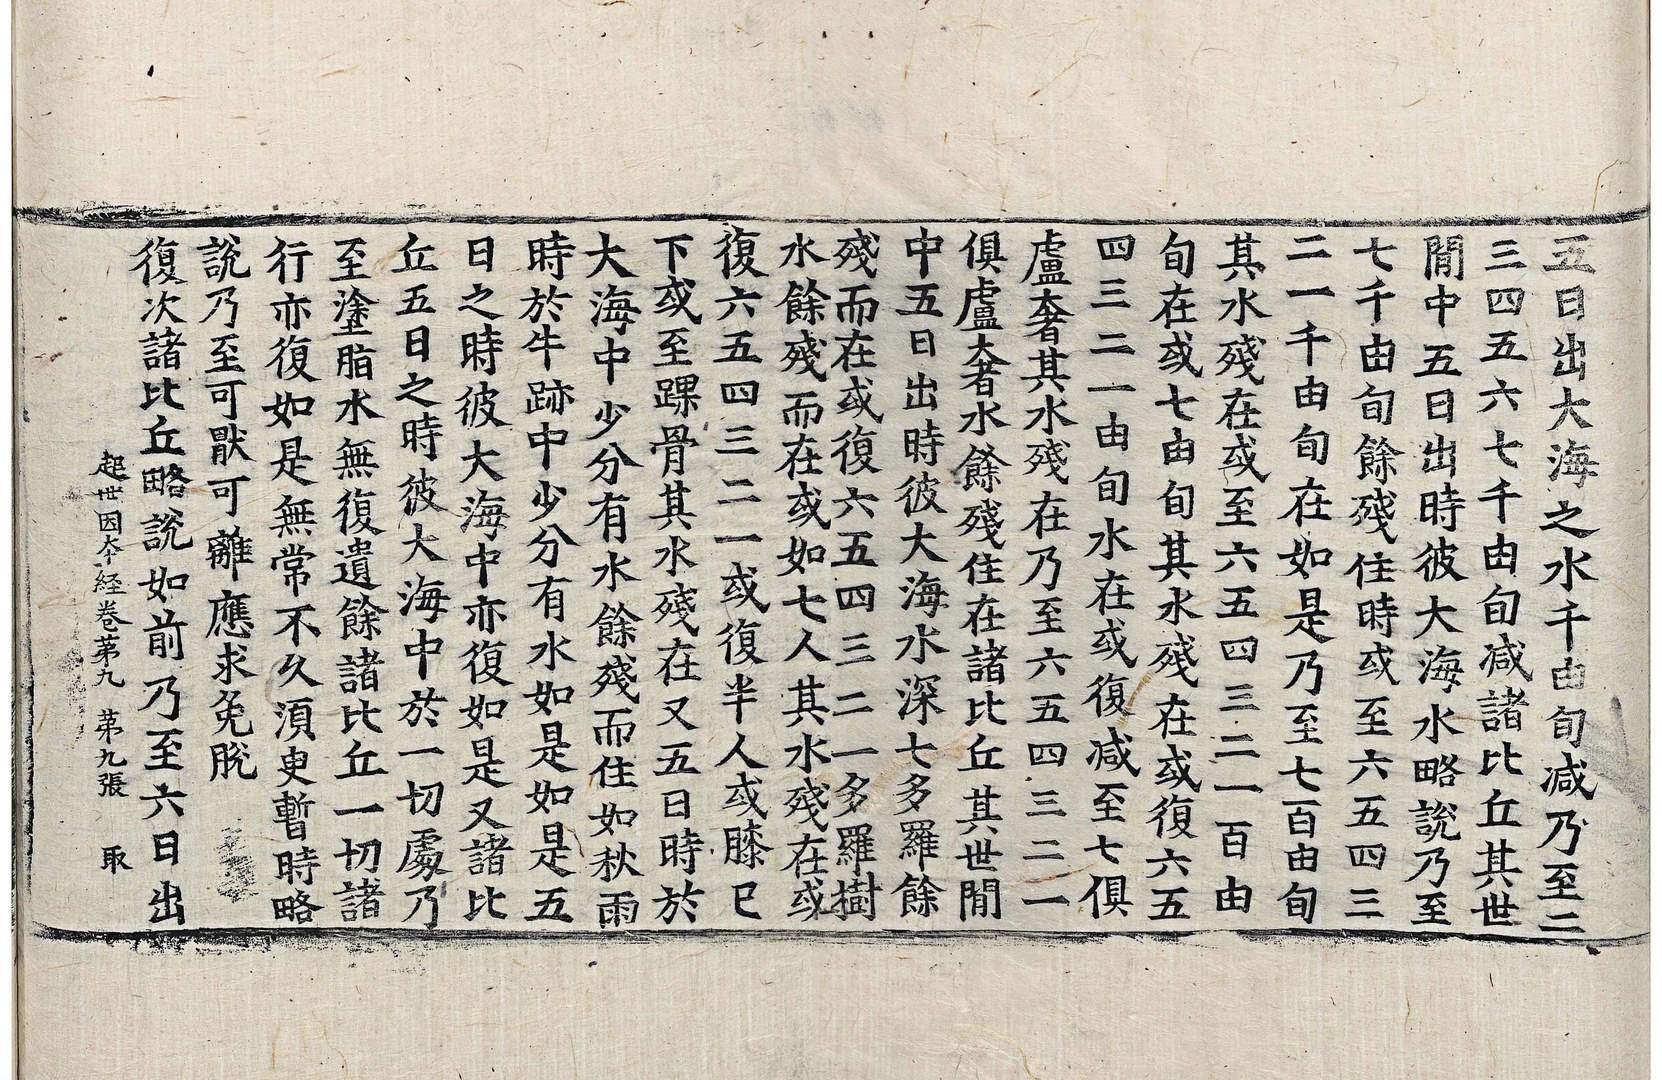 五日出大海之水千由旬減乃至二
三四五六七千由旬減諸比丘其世
間中五日出時彼大海水略說乃至
七千由旬餘殘住時或至六五四三
二一千由旬在如是乃至七百由旬
其水殘在或至六五四三二一百由
旬在或七由旬其水殘在或復六五
四三二一由旬水在或復減至七俱
盧奢其水殘在乃至六五四三二一
俱盧奢水餘殘住在諸比丘其世間
中五日出時彼大海水深七多羅餘
殘而在或復六五四三二一多羅樹
水餘殘而在或如七人其水殘在或
復六五四三二一或復半人或膝已
下或至踝骨其水殘在又五日時於
大海中少分有水餘殘而住如秋雨
時於牛跡中少分有水如是如是五
日之時彼大海中亦復如是又諸比
丘五日之時彼大海中於一切處乃
至塗脂水無復遺餘諸比丘一切諸
行亦復如是無常不久須臾暫時略
說乃至可猒可離應求免脫
復次諸比丘略說如前乃至六日出
起世因夲経卷苐九 苐九張 取